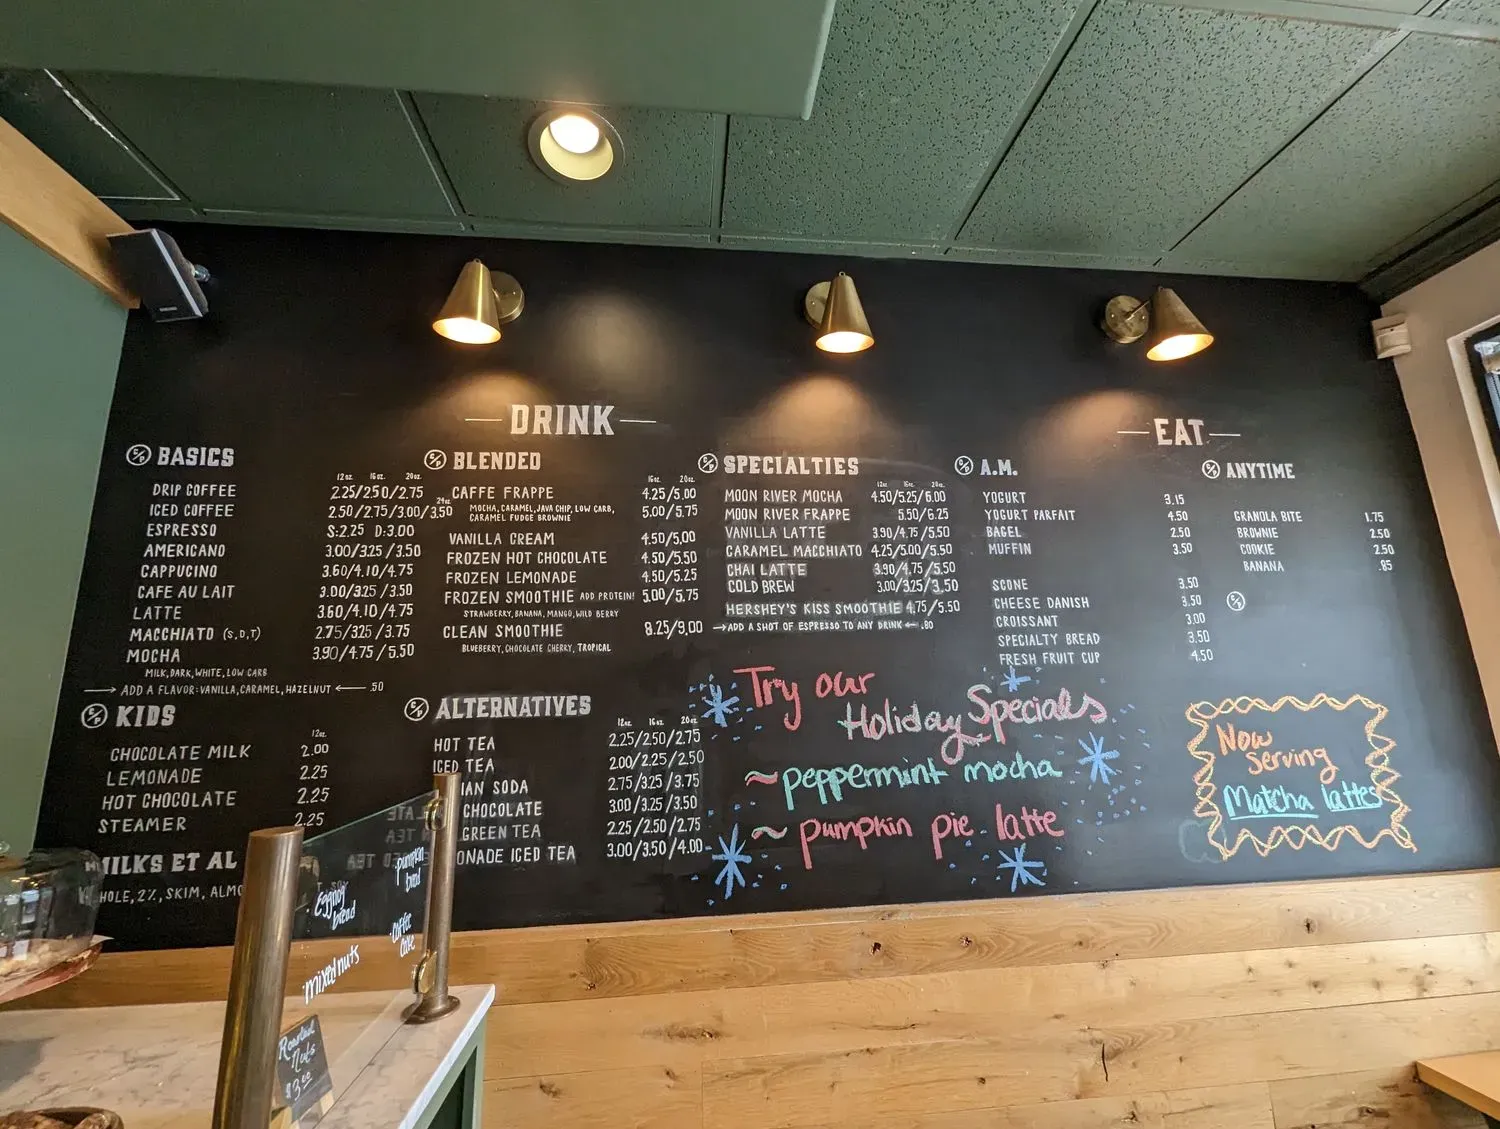 DRINK
BASICS
12oz. 16oz. 20oz.
DRIP COFFEE 2.25/2.50/2.75
24oz.
ICED COFFEE 2.50/2.75/3.00/3.50
ESPRESSO S:2.25 D:3.00
AMERICANO 3.00/3.25/3.50
CAPPUCINO 3.60/4.10/4.75
CAFE AU LAIT 3.00/3.25/3.50
LATTE 3.60/4.10/4.75
MACCHIATO (S,D,T) 2.75/3.25/3.75
MOCHA 3.90/4.75/5.50
MILK, DARK, WHITE, LOW CARB
ADD A FLAVOR: VANILLA, CARAMEL, HAZELNUT .50
KIDS
12oz.
CHOCOLATE MILK 2.00
LEMONADE 2.25
HOT CHOCOLATE 2.25
STEAMER 2.25
MILKS ET AL
WHOLE, 2%, SKIM, ALMO
BLENDED
16oz. 20oz.
CAFFE FRAPPE 4.25/5.00
MOCHA, CARAMEL, JAVA CHIP, LOW CARB, 5.00/5.75
CARAMEL FUDGE BROWNIE
VANILLA CREAM 4.50/5.00
FROZEN HOT CHOCOLATE 4.50/5.50
FROZEN LEMONADE 4.50/5.25
FROZEN SMOOTHIE ADD PROTEIN! 5.00/5.75
STRAWBERRY, BANANA, MANGO, WILD BERRY
CLEAN SMOOTHIE 8.25/9.00
BLUEBERRY, CHOCOLATE CHERRY, TROPICAL
ALTERNATIVES
12oz. 16oz. 20oz.
HOT TEA 2.25/2.50/2.75
ICED TEA 2.00/2.25/2.50
IAN SODA 2.75/3.25/3.75
CHOCOLATE 3.00/3.25/3.50
GREEN TEA 2.25/2.50/2.75
ONADE ICED TEA 3.00/3.50/4.00
SPECIALTIES
12oz. 16oz. 20oz.
MOON RIVER MOCHA 4.50/5.25/6.00
MOON RIVER FRAPPE 5.50/6.25
VANILLA LATTE 3.90/4.75/5.50
CARAMEL MACCHIATO 4.25/5.00/5.50
CHAI LATTE 3.90/4.75/5.50
COLD BREW 3.00/3.25/3.50
HERSHEY'S KISS SMOOTHIE 4.75/5.50
ADD A SHOT OF ESPRESSO TO ANY DRINK .80
Try our
Holiday Specials
~peppermint mocha
~ pumpkin pie latte
EAT
A.M.
YOGURT 3.15
YOGURT PARFAIT 4.50
BAGEL 2.50
MUFFIN 3.50
SCONE 3.50
CHEESE DANISH 3.50
CROISSANT 3.00
SPECIALTY BREAD 3.50
FRESH FRUIT CUP 4.50
ANYTIME
GRANOLA BITE 1.75
BROWNIE 2.50
COOKIE 2.50
BANANA .85
Now
Serving
Matcha lattes
pumpkin
bread
Eggnog
bread
coffee
cake
mixed nuts
Roasted
Nuts
$3.00